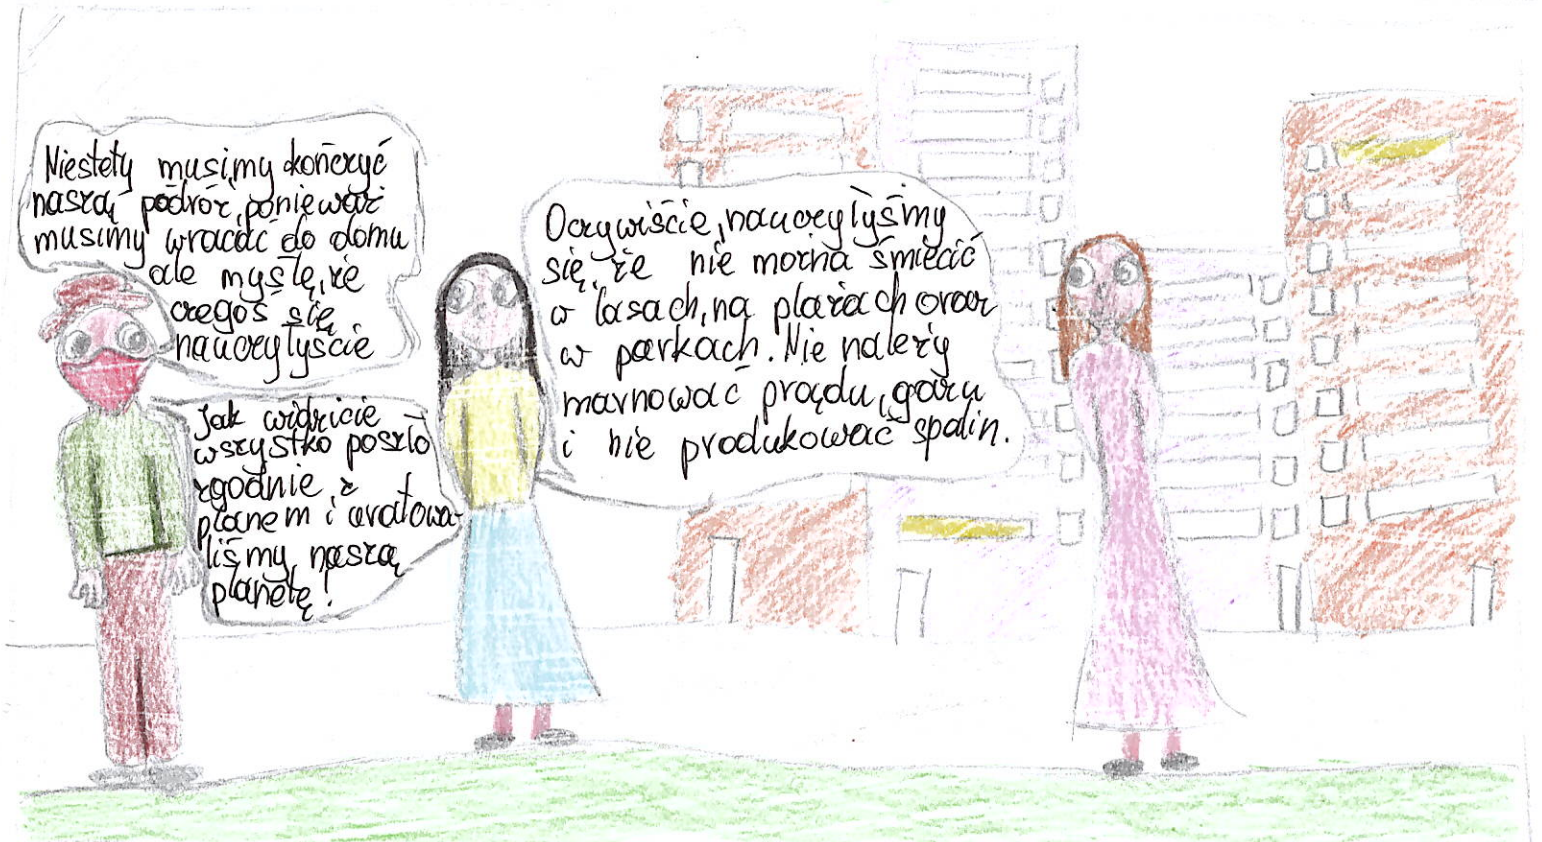 Niestety musimy kończyć
naszą podróż, ponieważ
musimy wracać do domu
ale myślę, że
czegoś się
nauczyłyście
Jak widzicie
wszystko poszło
zgodnie z
planem i uratowa-
liśmy naszą
planetę!
Oczywiście, nauczyłyśmy
się, że nie można śmiecić
w lasach, na plażach oraz
w parkach. Nie należy
marnować prądu, gazu
i nie produkować spalin.